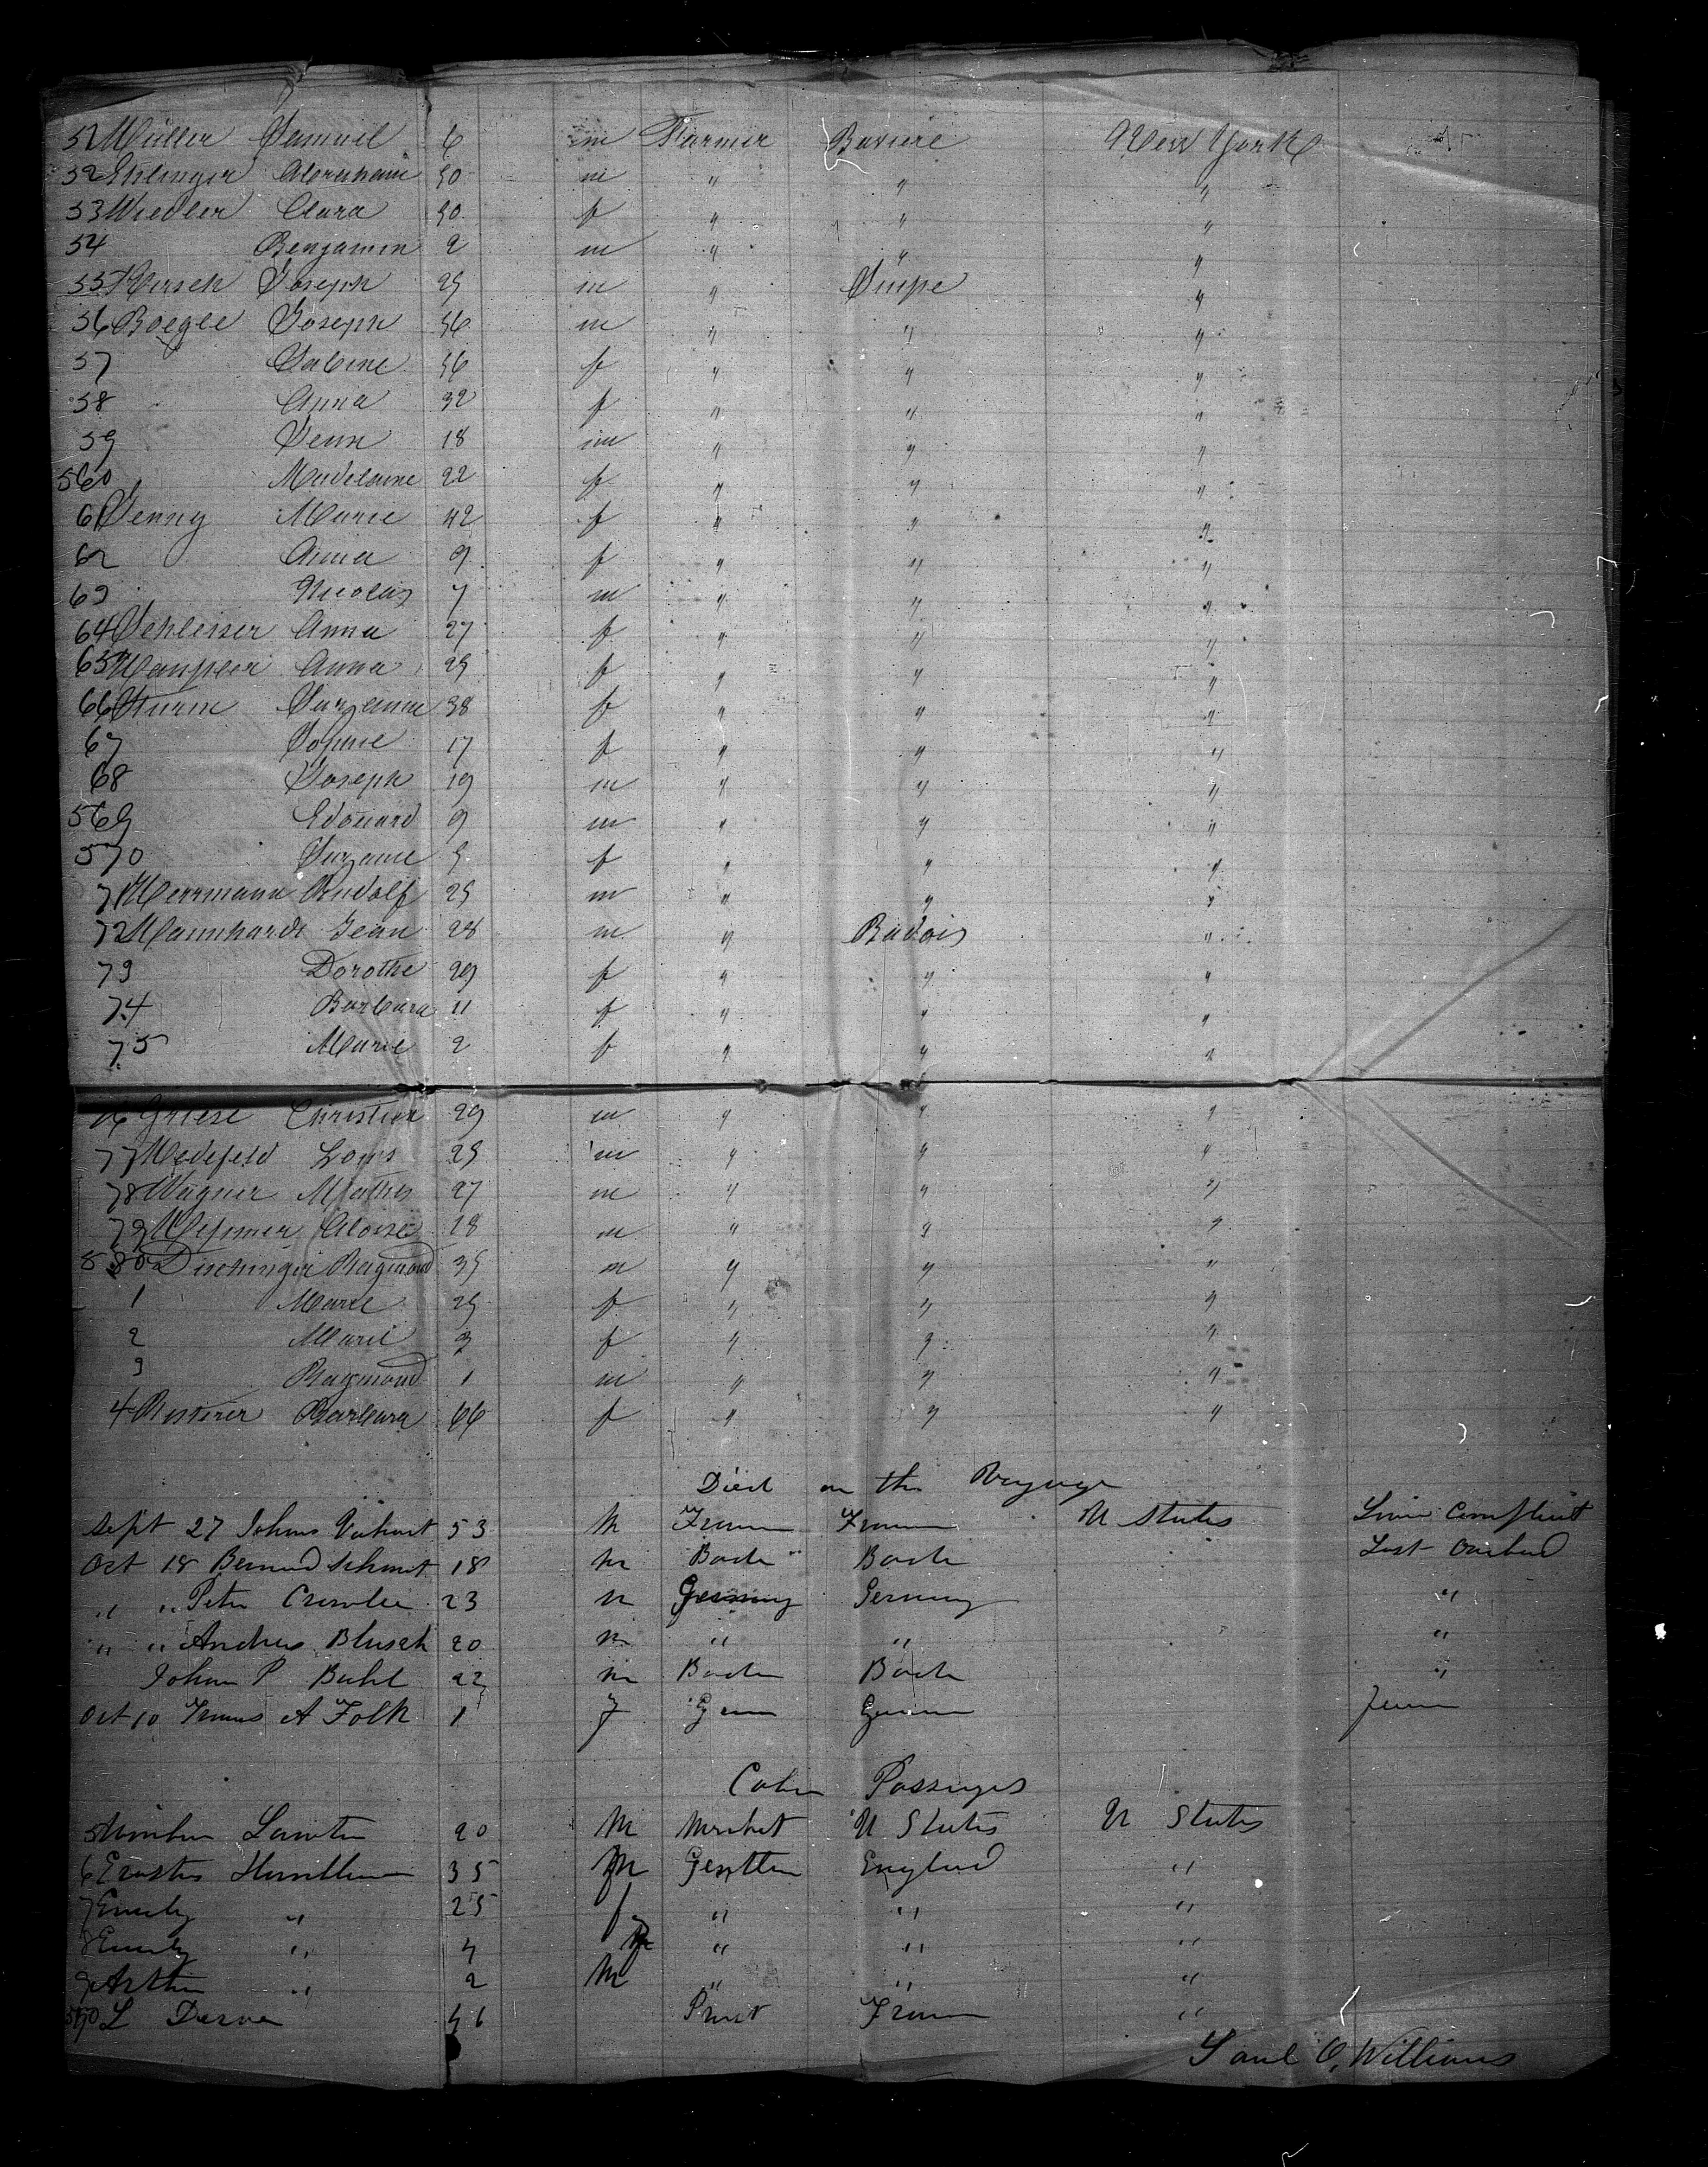 51 Müller Samuel 6 m Farmer Baviere New York
52 Ehlinger Abraham 50 m " " "
53 Wiedler Clara 30 f " " "
54 Benjamin 2 m " " "
55 Hirsch Joseph 25 m " Suisse "
56 Boegle Joseph 56 m " " "
57 Sabine 56 f " " "
58 Anna 32 f " " "
59 Jean 18 m " " "
560 Madelaine 22 f " " "
61 Jenny Marie 42 f " " "
62 Anna 9 f " " "
63 Nicolas 7 m " " "
64 Schleisser Anna 27 f " " "
65 Anna 25 f " " "
66 Sturm Suzanne 38 f " " "
67 Sophie 17 f " " "
68 Joseph 19 m " " "
569 Edouard 9 m " " "
570 Suzanne 5 f " " "
71 Herrmann Rudolf 25 m " " "
72 Mannhardt Jean 28 m " Badois "
73 Dorothe 29 f " " "
74 Barbara 11 f " " "
75 Marie 2 f " " "
76 Griese Christian 29 m " " "
77 Louis 25 m " " "
78 Wagner Mathis 27 m " " "
79 Messmer Aloise 18 m " " "
580 Dischinger Raymond 35 m " " "
1 Marie 25 f " " "
2 Marie 3 f " " "
3 Raymond 1 m " " "
4 Barbara 66 f " " "
Died on the Voyage
Sept 27 Johns 53 M France France U States Complaint
Oct 18 Bernard Schmit 18 m Baden Baden Lost Overboard
" " Peter 23 m Germany Germany "
" " Andreas Blusch 20 m " " "
Johann P Buhl 22 m Baden Baden "
Oct 10 A Folk 1 f Germ German
Cabin Passengers
5 20 M Merchant U States U States
6 Erastus 35 M Gentleman England "
7 Emily " 25 f " " "
8 Emily " 4 " " "
9 Arthur " 2 M " " "
590 L 46 Priest France "
Saml C. Williams